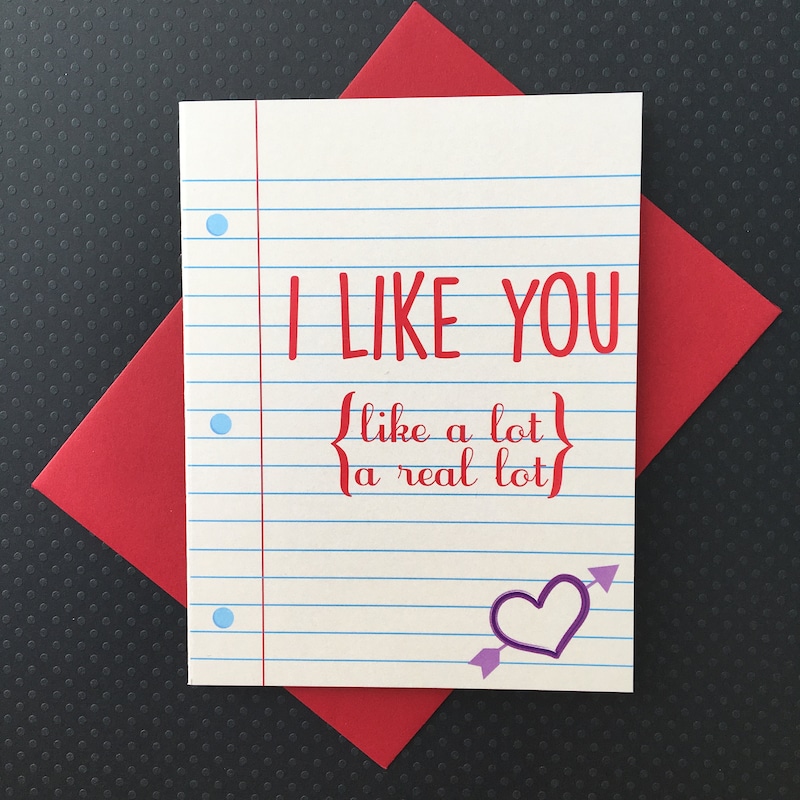 I LIKE YOU
{like a lot
a real lot}